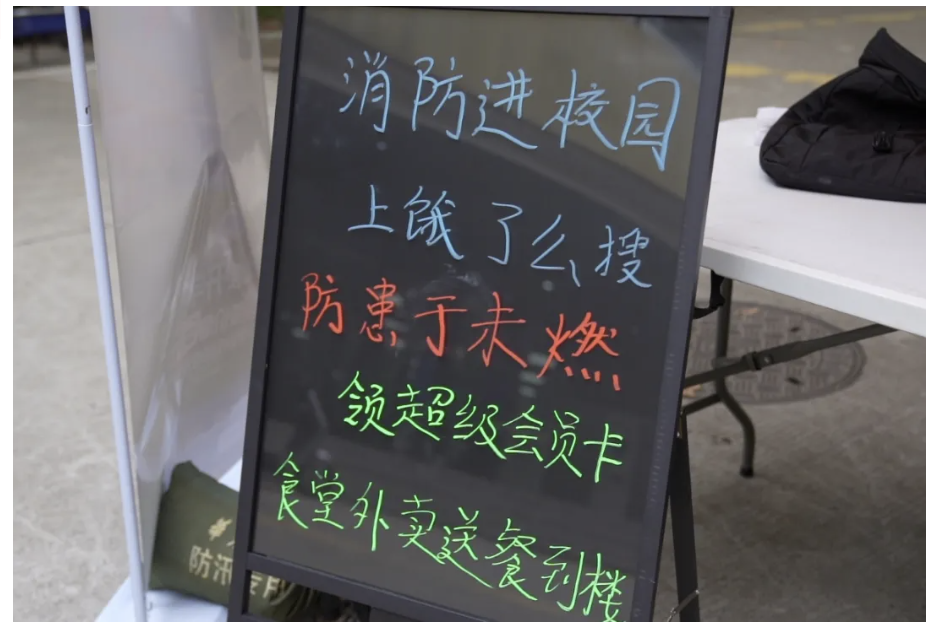 消防进校园
上饿了么搜
防患于未燃
领超级会员卡
食堂外卖送餐到楼
防汛专用